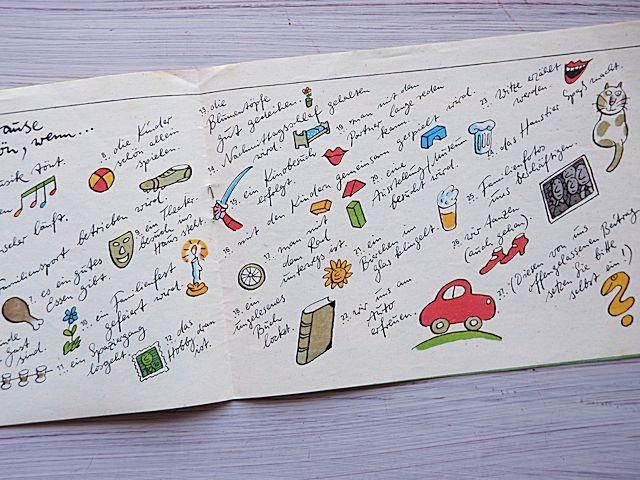 ause
ön, wenn...
sik tönt.
nseher läuft.
Familiensport betrieben wird.
7. es ein gutes
Essen gibt.
sind.
8. die Kinder
schön allein
spielen.
9. ein Theater-
besuch ins
Haus steht.
10. ein Familienfest
gefeiert wird.
11. ein Spaziergang
losgeht.
12. das
Hobby dran
ist.
13. die
Blumentöpfe
gut gedeihen.
14. Nachmittagsschlaf gehalten
wird.
15. ein Kinobesuch
erfolgt.
16. mit den Kindern gemeinsam gespielt wird.
17. man mit
dem Rad
unterwegs ist.
18. ein
angelesenes
Buch
lockt.
19. man mit dem
Partner lange reden
kann.
20. eine
Ausstellung
besucht wird.
21. ein
Bierchen im
Glas klingelt.
22. wir uns am
Auto
erfreuen.
23. Witze erzählt
werden.
24. das Haustier Spaß macht.
25. Familienfotos
uns beschäftigen.
26. wir tanzen
(auch gehen).
27. (Diesen von uns
offengelassenen Beitrag
setzen Sie bitte
selbst ein!)